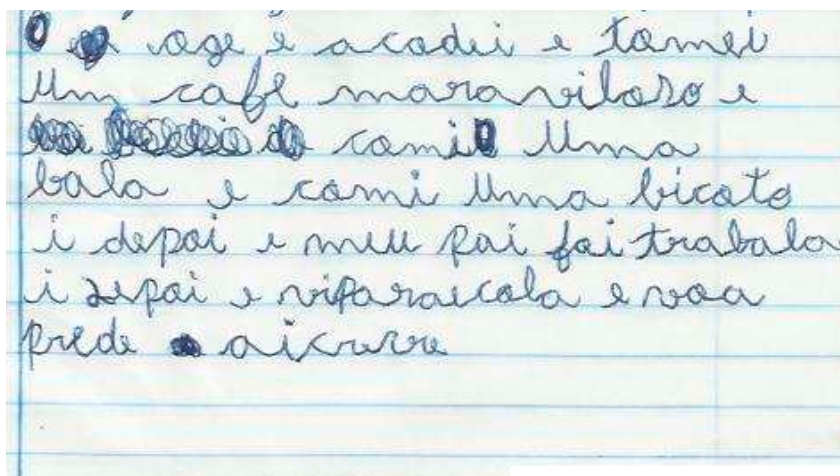 oge e acodei e tomei
Um cafe maraviloso e
comi Uma
bala e comi Uma bicoto
i depoi e meu pai foi trabala
i depoi e viparaicola e voa
prede aicreve